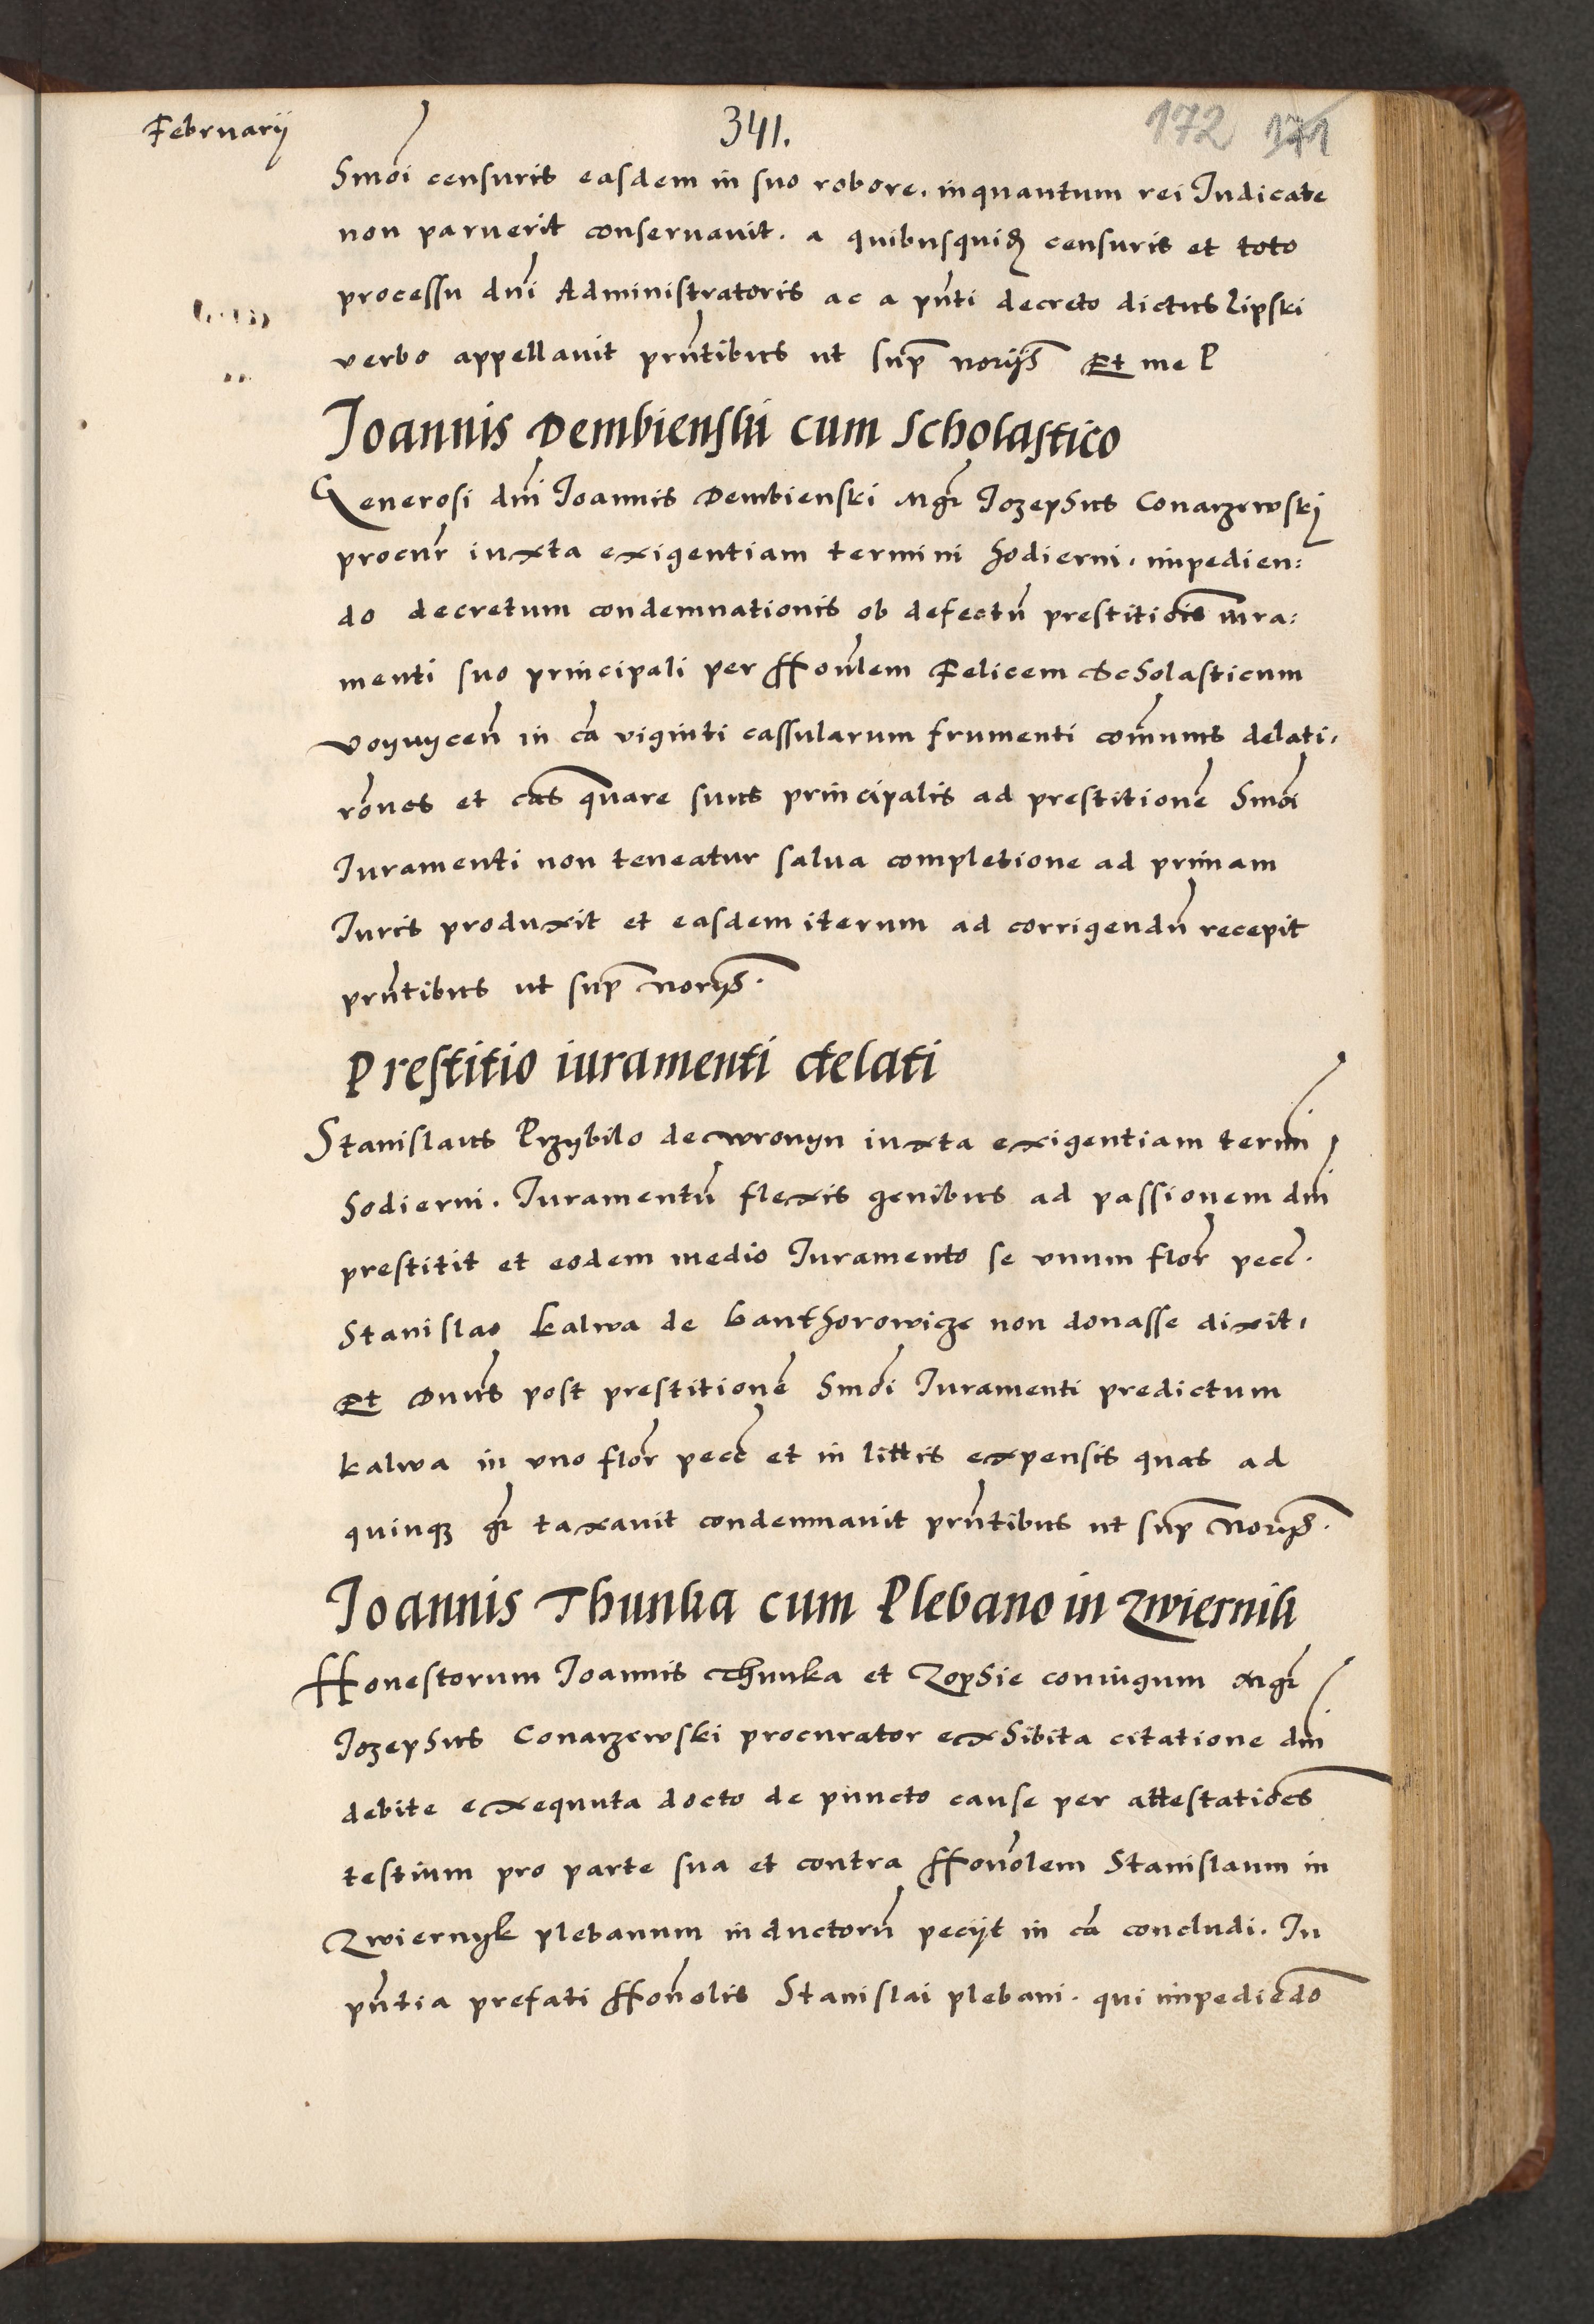 Februarij
341.
172 171
hmoi censuris easdem in suo robore. inquantum rei Iudicate
non paruerit conseruauit. a quibusquid censuris et toto
processu dni Administratoris ac a pnti decreto dictus Lipski
verbo appellauit prntibus ut sup norijs Et me P
Ioannis Dembienski cum Scholastico
Generosi dni Ioannis Dembienski Mgr Iozephus Conarzewskj
procur iuxta exigentiam termini hodierni. impedien:
do decretum condemnationis ob defectu prestitiois iura:
menti suo principali per Honlem Felicem Scholasticum
voynycen in ca viginti cassularum frumenti comunis delati,
rones et cas quare suus principalis ad prestitione hmoi
Iuramenti non teneatur salua completione ad primam
Iuris produxit et easdem iterum ad corrigendu recepit
prntibus ut sup norijs.
Prestitio iuramenti delati
Stanislaus Przybilo de wronyn iuxta exigentiam termi
hodierni. Iuramentu flexis genibus ad passionem dni
prestitit et eodem medio Iuramento se vnum flor pecc.
Stanislao kalwa de banthorowicze non donasse dixit,
Et Dnus post prestitione hmoi Iuramenti predictum
kalwa in vno flor pecc et in littis expensis quas ad
quinqz gr taxauit condemnauit prntibus ut sup Norijs.
Ioannis Thunka cum Plebano in Zwiernik
Honestorum Ioannis Thunka et Zophie coniugum Mgr
Iozephus Conarzewski procurator exhibita citatione dni
debite exequuta docto de puncto cause per attestatioes
testium pro parte sua et contra Honolem Stanislaum in
Zwiernyk plebanum inductoru pecijt in ca concludi. In
pntia prefati Honolis Stanislai plebani. qui impediedo